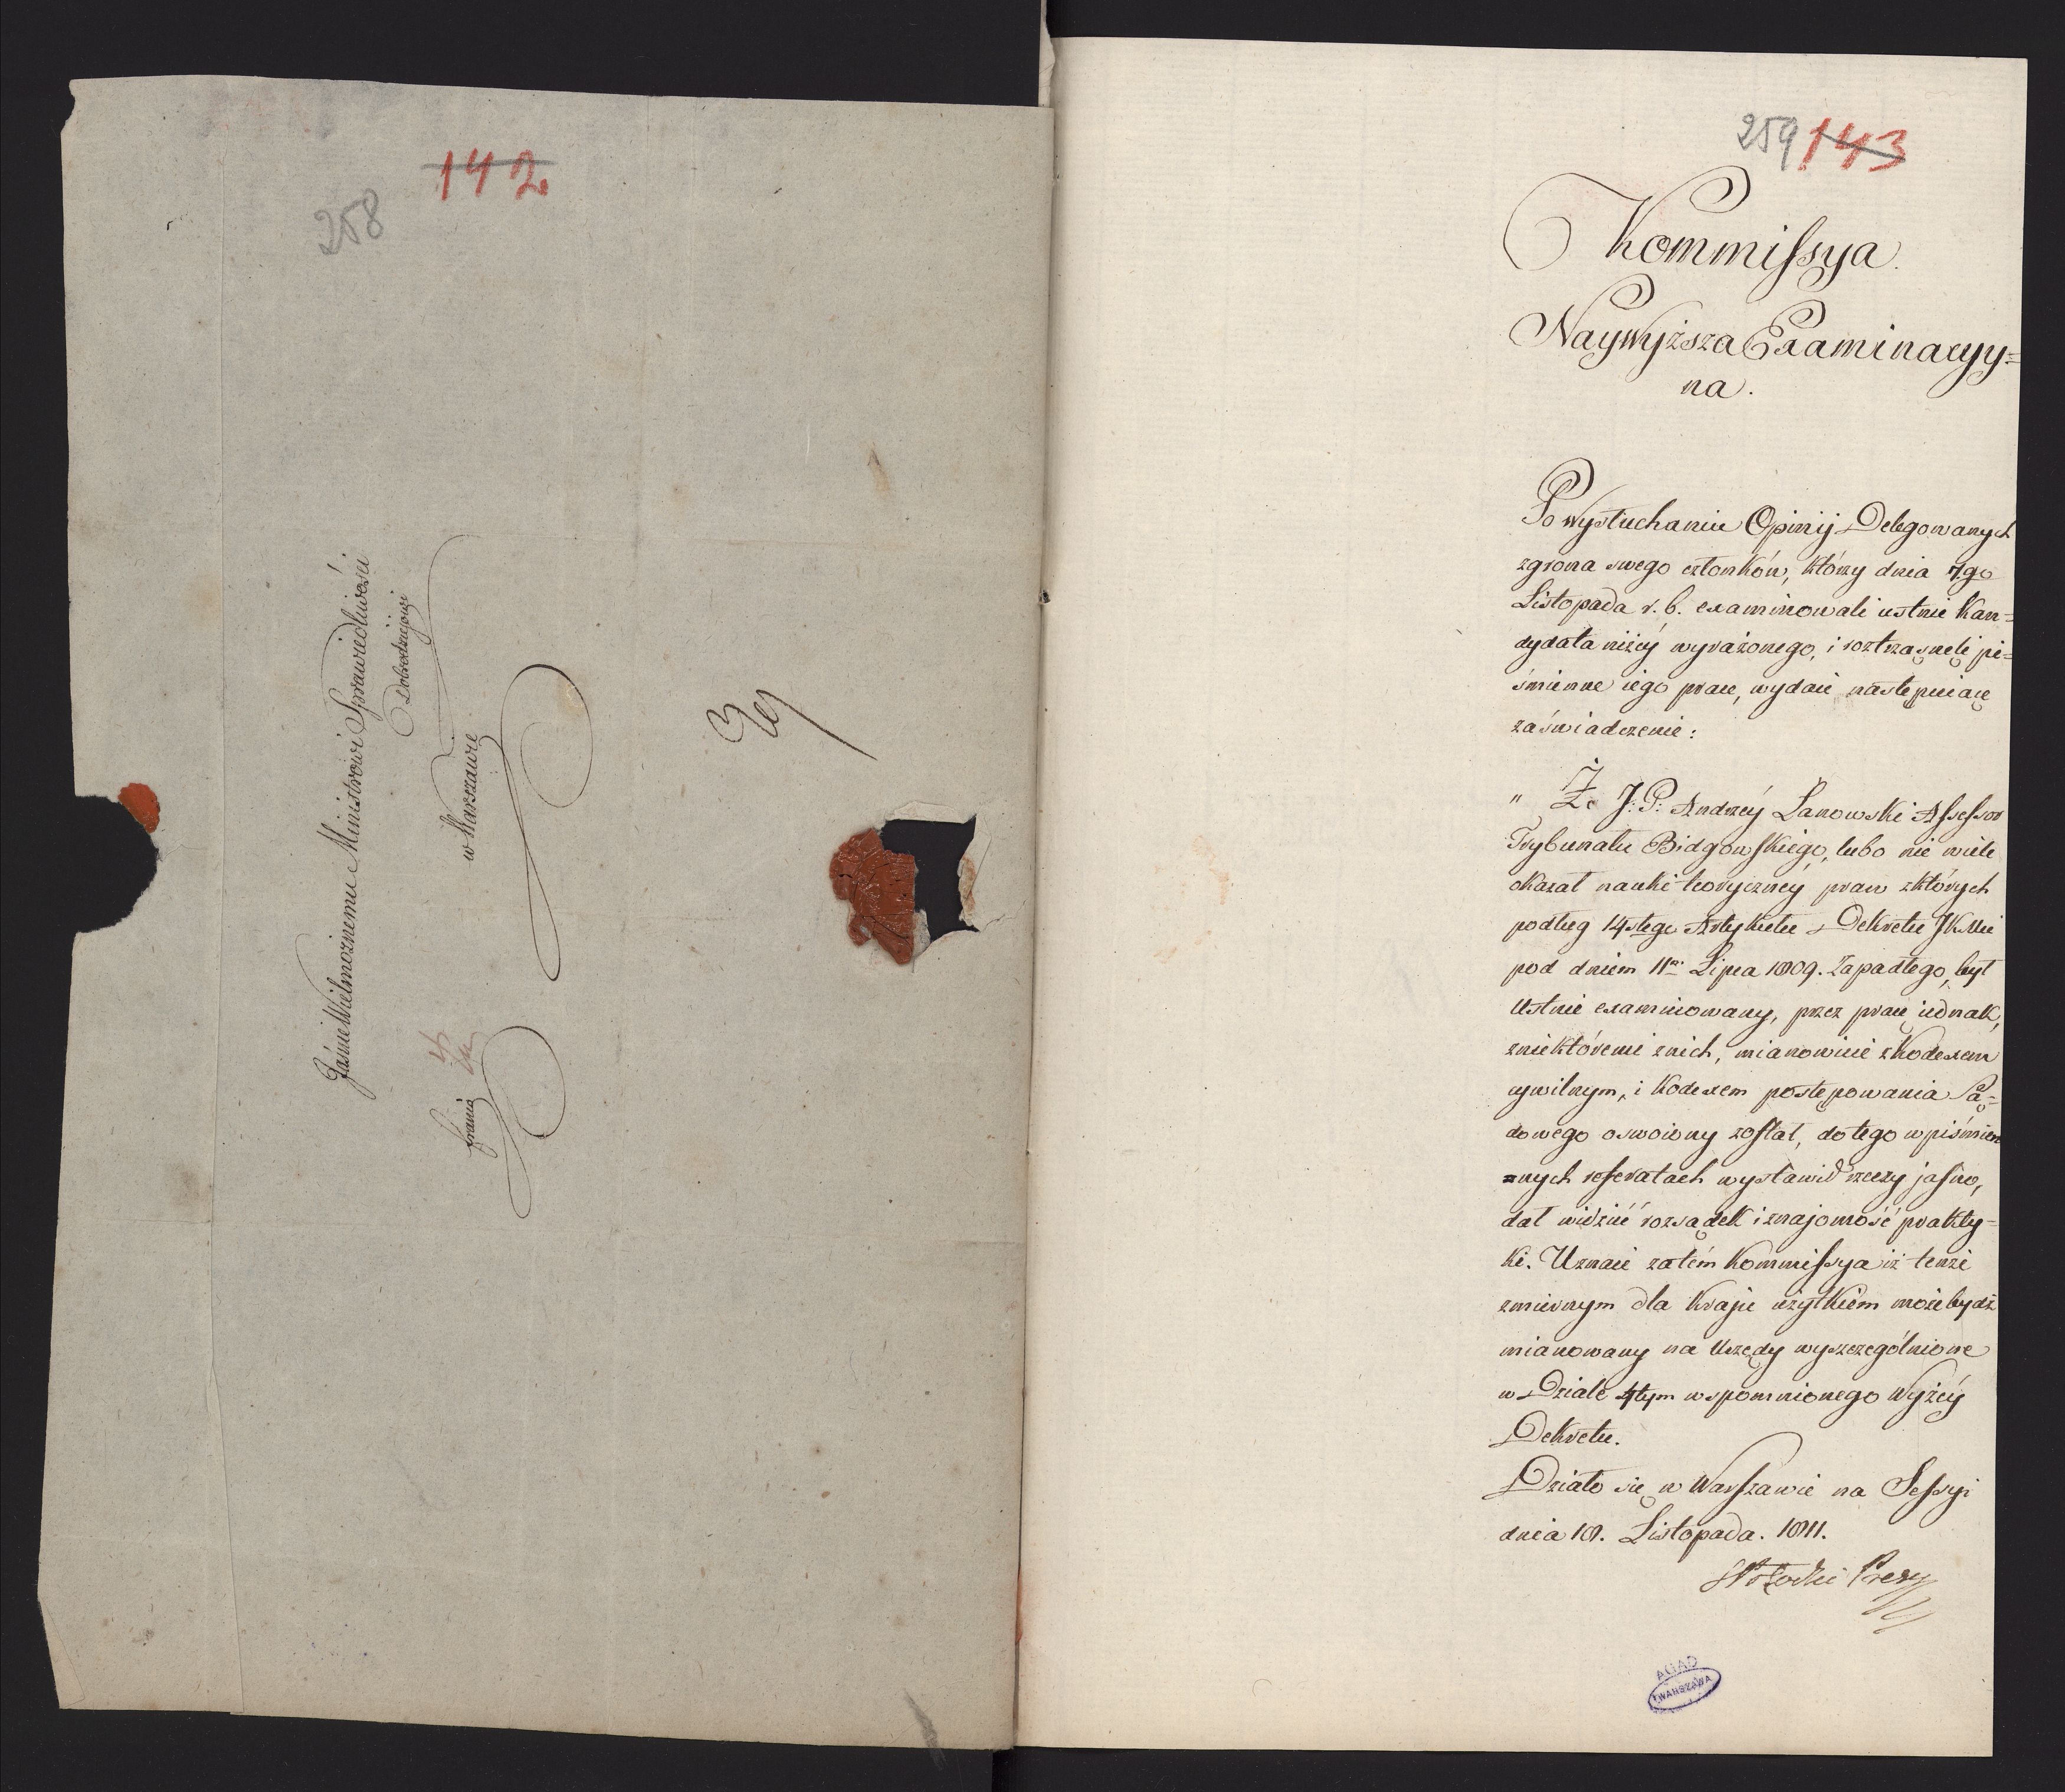 142
258
Jaśnie Wielmożnemu Ministrowi Sprawiedliwości
Dobrodziejowi
w Warszawie
franco
259 143
Kommissya
Naywyższa Examinacyy=
na.
Po wysłuchaniu Opinij Delegowanych
zgrona swego członków, którzy dnia 7go
Listopada r. b. examinowali ustnie Kan=
dydata niżéy wyrażonego, i roztrząsnęli pi=
śmienne iego prace, wydaie następuiące
zaświadczenie:
" Że J: P: Andrzéy Łanowski Assessor
Trybunału Bidgowskiego, lubo nie wiele
okazał nauki teoryczney praw z których
podług 14stego Artykułu Dekretu JKMci
pod dniem 11m Lipca 1809. Zapadłego, był
Ustnie examinowany, przez pracę iednak,
zniektóremi znich, mianowicie z Kodexem
cywilnym, i Kodexem postępowania Są=
dowego oswoiony został, do tego w piśmien
=nych referatach wystawił rzeczy jasno,
dał widzieć rozsądek i znajomość prakty=
ki. Uznaie zatém Kommissya iż tenże
zmiernym dla Kraju użytkiem może bydź
mianowany na Urzędy wyszczególnione
w Dziale 4tym wspomnionego Wyżéy
Dekretu.
Działo się w Warszawie na Sessyi
dnia 18. Listopada. 1811.
Prezy
AGAD
WARSZAWA